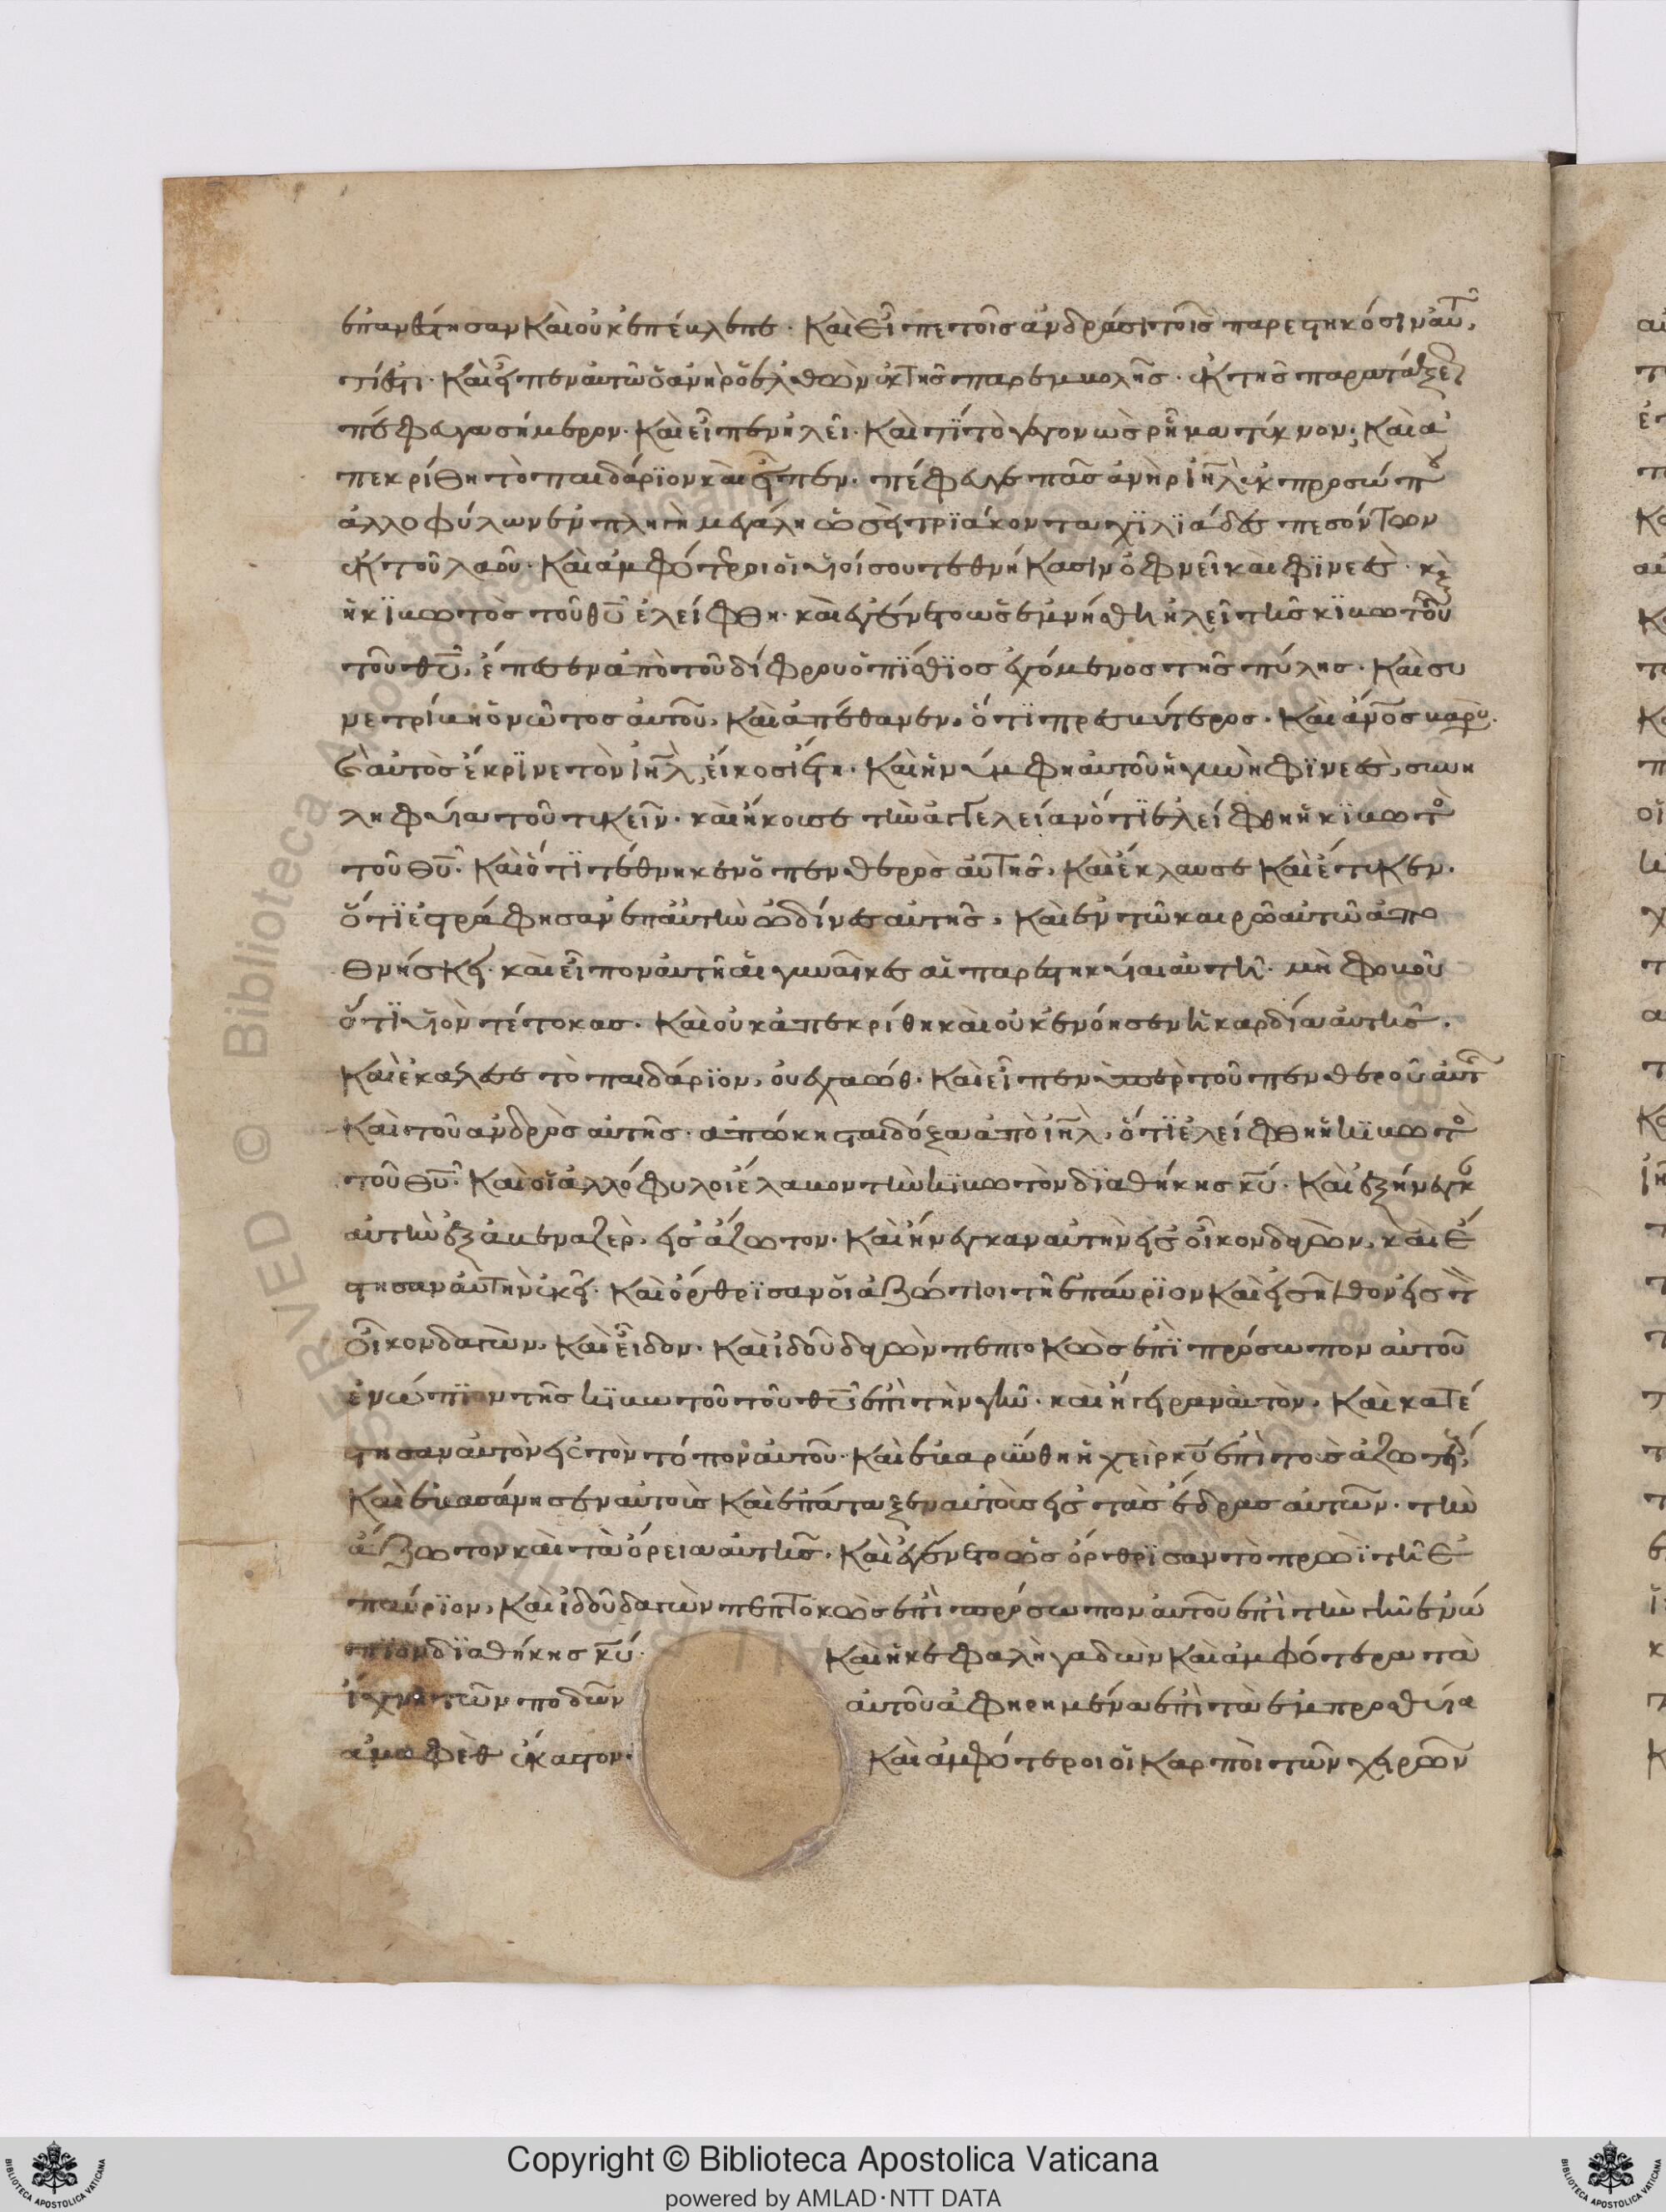 ἐπανέστησαν καὶ οὐκ ἐπέβλεπε. καὶ εἶπε τοῖς ἀνδράσι τοῖς παρεστηκόσιν αὐτῶ,
τί ἐστι. καὶ εἶπεν αὐτῶ ὁ ἀνὴρ ὁ ἐλθὼν ἐκ τῆς παρεμβολῆς. ἐκ τῆς παρατάξε
πέφευγα σήμερον. καὶ εἶπεν ἠλεῖ. καὶ τί τὸ γεγονὼς ῥῆμα τέκνον; καὶ ἀ
πεκρίθη τὸ παιδάριον καὶ εἶπεν. πέφευγε πᾶς ἀνὴρ ιῆλ ἐκ προσώπου
ἀλλοφύλων ἐν πληγῆ μεγάλη ὡσεὶ τριάκοντα χιλιάδες πεσόντων
ἐκ τοῦ λαοῦ. καὶ ἀμφότεροι οἱ υἱοί σου τεθνήκασιν ὀφνεὶ καὶ φινεές. κὲ
ἡ κιβωτὸς τοῦ θυ ἐλείφθη. καὶ ἐγένετο ὡς ἐμνήσθη ἠλεὶ τῆς κιβωτοῦ
τοῦ θυ, ἔπεσεν ἀπὸ τοῦ δίφρου ὀπίσθιος ἐχόμενος τῆς πύλης. καὶ συ
νετρίβη ὁ νῶτος αὐτοῦ, καὶ ἀπέθανεν, ὅτι πρεσβύτερος. καὶ ἀνος βαρύ.
καὶ αὐτὸς ἔκρινε τὸν ιῆλ, εἴκοσι ἔτη. καὶ ἡ νύμφη αὐτοῦ ἡ γυνὴ φινεές, συνη
ληφυῖα τοῦ τεκεῖν. καὶ ἤκουσε τὴν ἀγγελείαν ὅτι ἐλείφθη ἡ κιβωτὸ
τοῦ θυ. καὶ ὅτι τέθνηκεν ὁ πενθερὸς αὐτῆς, καὶ ἔκλαυσε καὶ ἔτεκεν.
ὅτι ἐστράφησαν ἐπ αὐτὴν ὠδίνες αὐτῆς, καὶ ἐν τῶ καιρῶ αὐτῶ ἀπο
θνήσκει. καὶ εἶπον αὐτῆ αἱ γυναῖκες αἱ παρεστηκυῖαι αὐτῆ. μὴ φοβοῦ
ὅτι υἱὸν τέτοκας. καὶ οὐκ ἀπεκρίθη καὶ οὐκ ἐνόησεν ἡ καρδία αὐτῆς.
καὶ ἐκάλεσε τὸ παιδάριον, οὐεχαβώθ. καὶ εἶπεν ὑπερ τοῦ πενθεροῦ αὐτῆ
καὶ τοῦ ἀνδρὸς αὐτῆς. ἀπώκησται δόξα ἀπὸ ιῆλ, ὅτι ἐλείφθη ἡ κιβωτὸ
τοῦ θυ. καὶ οἱ ἀλλόφυλοι ἔλαβον τὴν κιβωτὸν διαθήκης κυ. καὶ ἐξήνεγκ
αὐτὴν ἐξ ἀβεναζερ, εἰς ἄζωτον. καὶ ἤνεγκαν αὐτὴν εἰς οἶκον δαγὼν, καὶ ἔ
στησαν αὐτὴν ἐκεῖ. καὶ ὄρθρισαν οἱ ἀζώτιοι τῆ ἐπαύριον καὶ εἰσῆλθον εἰς τ
οἶκον δαγὼν, καὶ εἶδον. καὶ ἰδοῦ δαγὼν πεπτοκὼς ἐπὶ πρόσωπον αὐτοῦ
ἐνώπιον τῆς κιβωτοῦ τοῦ θυ ἐπὶ τὴν γῆν. καὶ ἤγειραν αὐτὸν, καὶ κατέ
στησαν αὐτὸν εἰς τὸν τόπον αὐτοῦ. καὶ ἐβαρύνθη ἡ χεὶρ κυ ἐπὶ τοὺς ἀζωτίους,
καὶ ἐβασάνισεν αὐτοὺς καὶ ἐπάταξεν αὐτοὺς εἰς τὰς ἕδρας αὐτῶν. τὴν
ἄζωτον καὶ τὰ ὅρεια αὐτῆς. καὶ ἐγένετο ὡς ὄρθρισαν τὸ πρωῒ τῆ ἐ
παύριον, καὶ ἰδοῦ δαγὼν πεπτοκὼς ἐπὶ πρόσωπον αὐτοῦ ἐπὶ τὴν γῆν ἐνώ
πιον διαθήκης κυ. καὶ ἡ κεφαλὴ γαδὼν καὶ ἀμφότερα τὰ
ἴχνη τῶν ποδῶν αὐτοῦ ἀφηρημένα ἐπὶ τὰ ἐμπροσθια
ἀμαφὲθ ἕκαστον. καὶ ἀμφότεροι οἱ καρποὶ τῶν χειρῶν
Copyright © Biblioteca Apostolica Vaticana
powered by AMLAD·NTT DATA